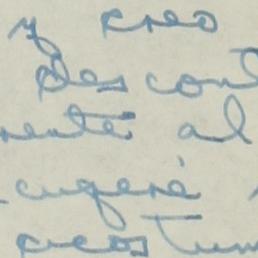 y creo
descont
mente al
sugeré
acostum